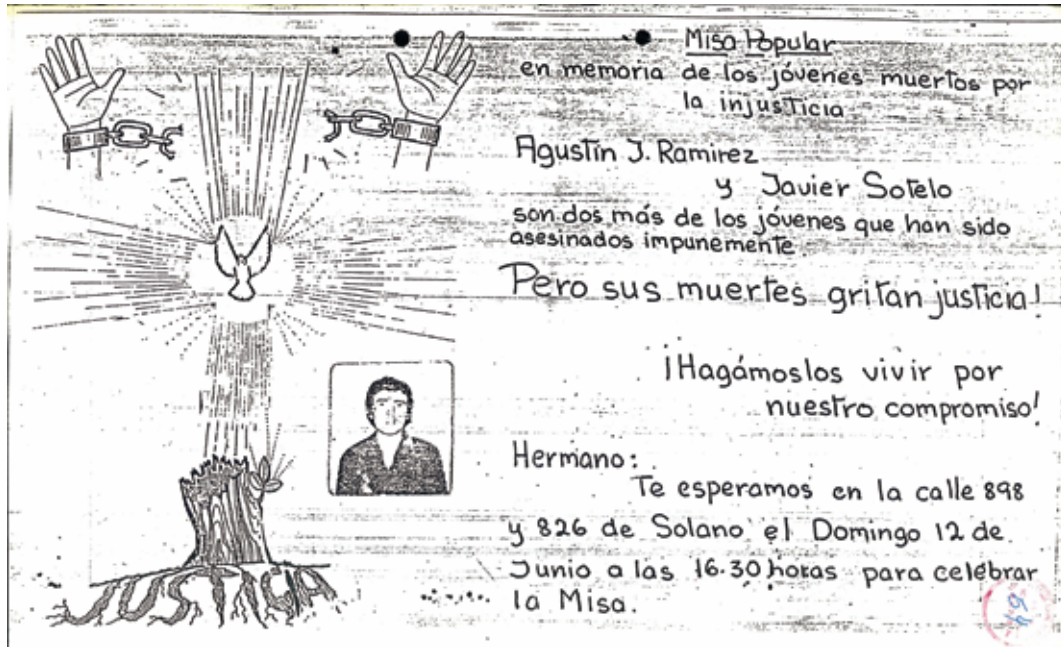 Misa Popular
en memoria de los jóvenes muertos por
la injusticia
Agustín J. Ramirez
y Javier Sotelo
son dos más de los jóvenes que han sido
asesinados impunemente
Pero sus muertes gritan justicia!
¡Hagámoslos vivir por
nuestro compromiso!
Hermano:
Te esperamos en la calle 898
y 826 de Solano el Domingo 12 de
Junio a las 16.30 horas para celebrar
la Misa.
JUSTICIA